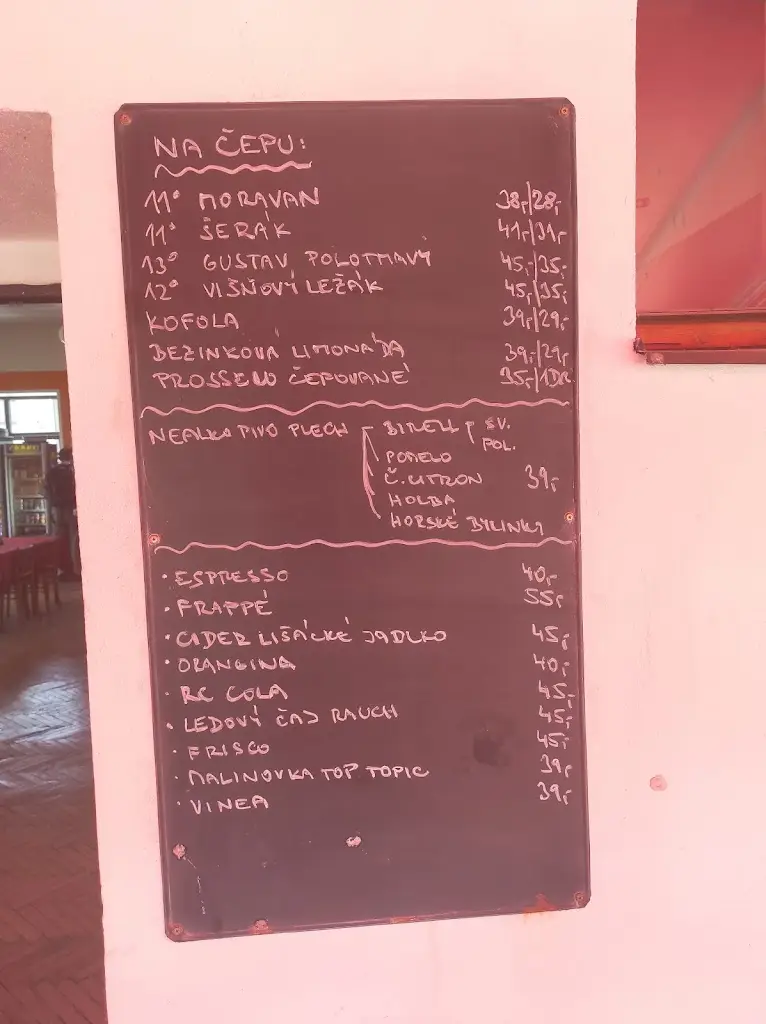 NA ČEPU:
11° MORAVAN 38,-/28,-
11° ŠERÁK 41,-/31,-
13° GUSTAV POLOTMAVÝ 45,-/35,-
12° VIŠŇOVÝ LEŽÁK 45,-/35,-
KOFOLA 39,-/29,-
BEZINKOVÁ LIMONÁDA 39,-/29,-
PROSSEKO ČEPOVANÉ 35,-/1DR
NEALKO PIVO PLECH BIRELL SV.
POL.
POMELO
Č.CITRON 39,-
HOLBA
HORSKÉ BYLINKY
· ESPRESSO 40,-
· FRAPPÉ 55,-
· CIDER LIŠÁCKÉ JABLKO 45,-
· ORANGINA 40,-
· RC COLA 45,-
· LEDOVÝ ČAJ RAUCH 45,-
· FRISCO 45,-
· MALINOVKA TOP TOPIC 39,-
· VINEA 39,-